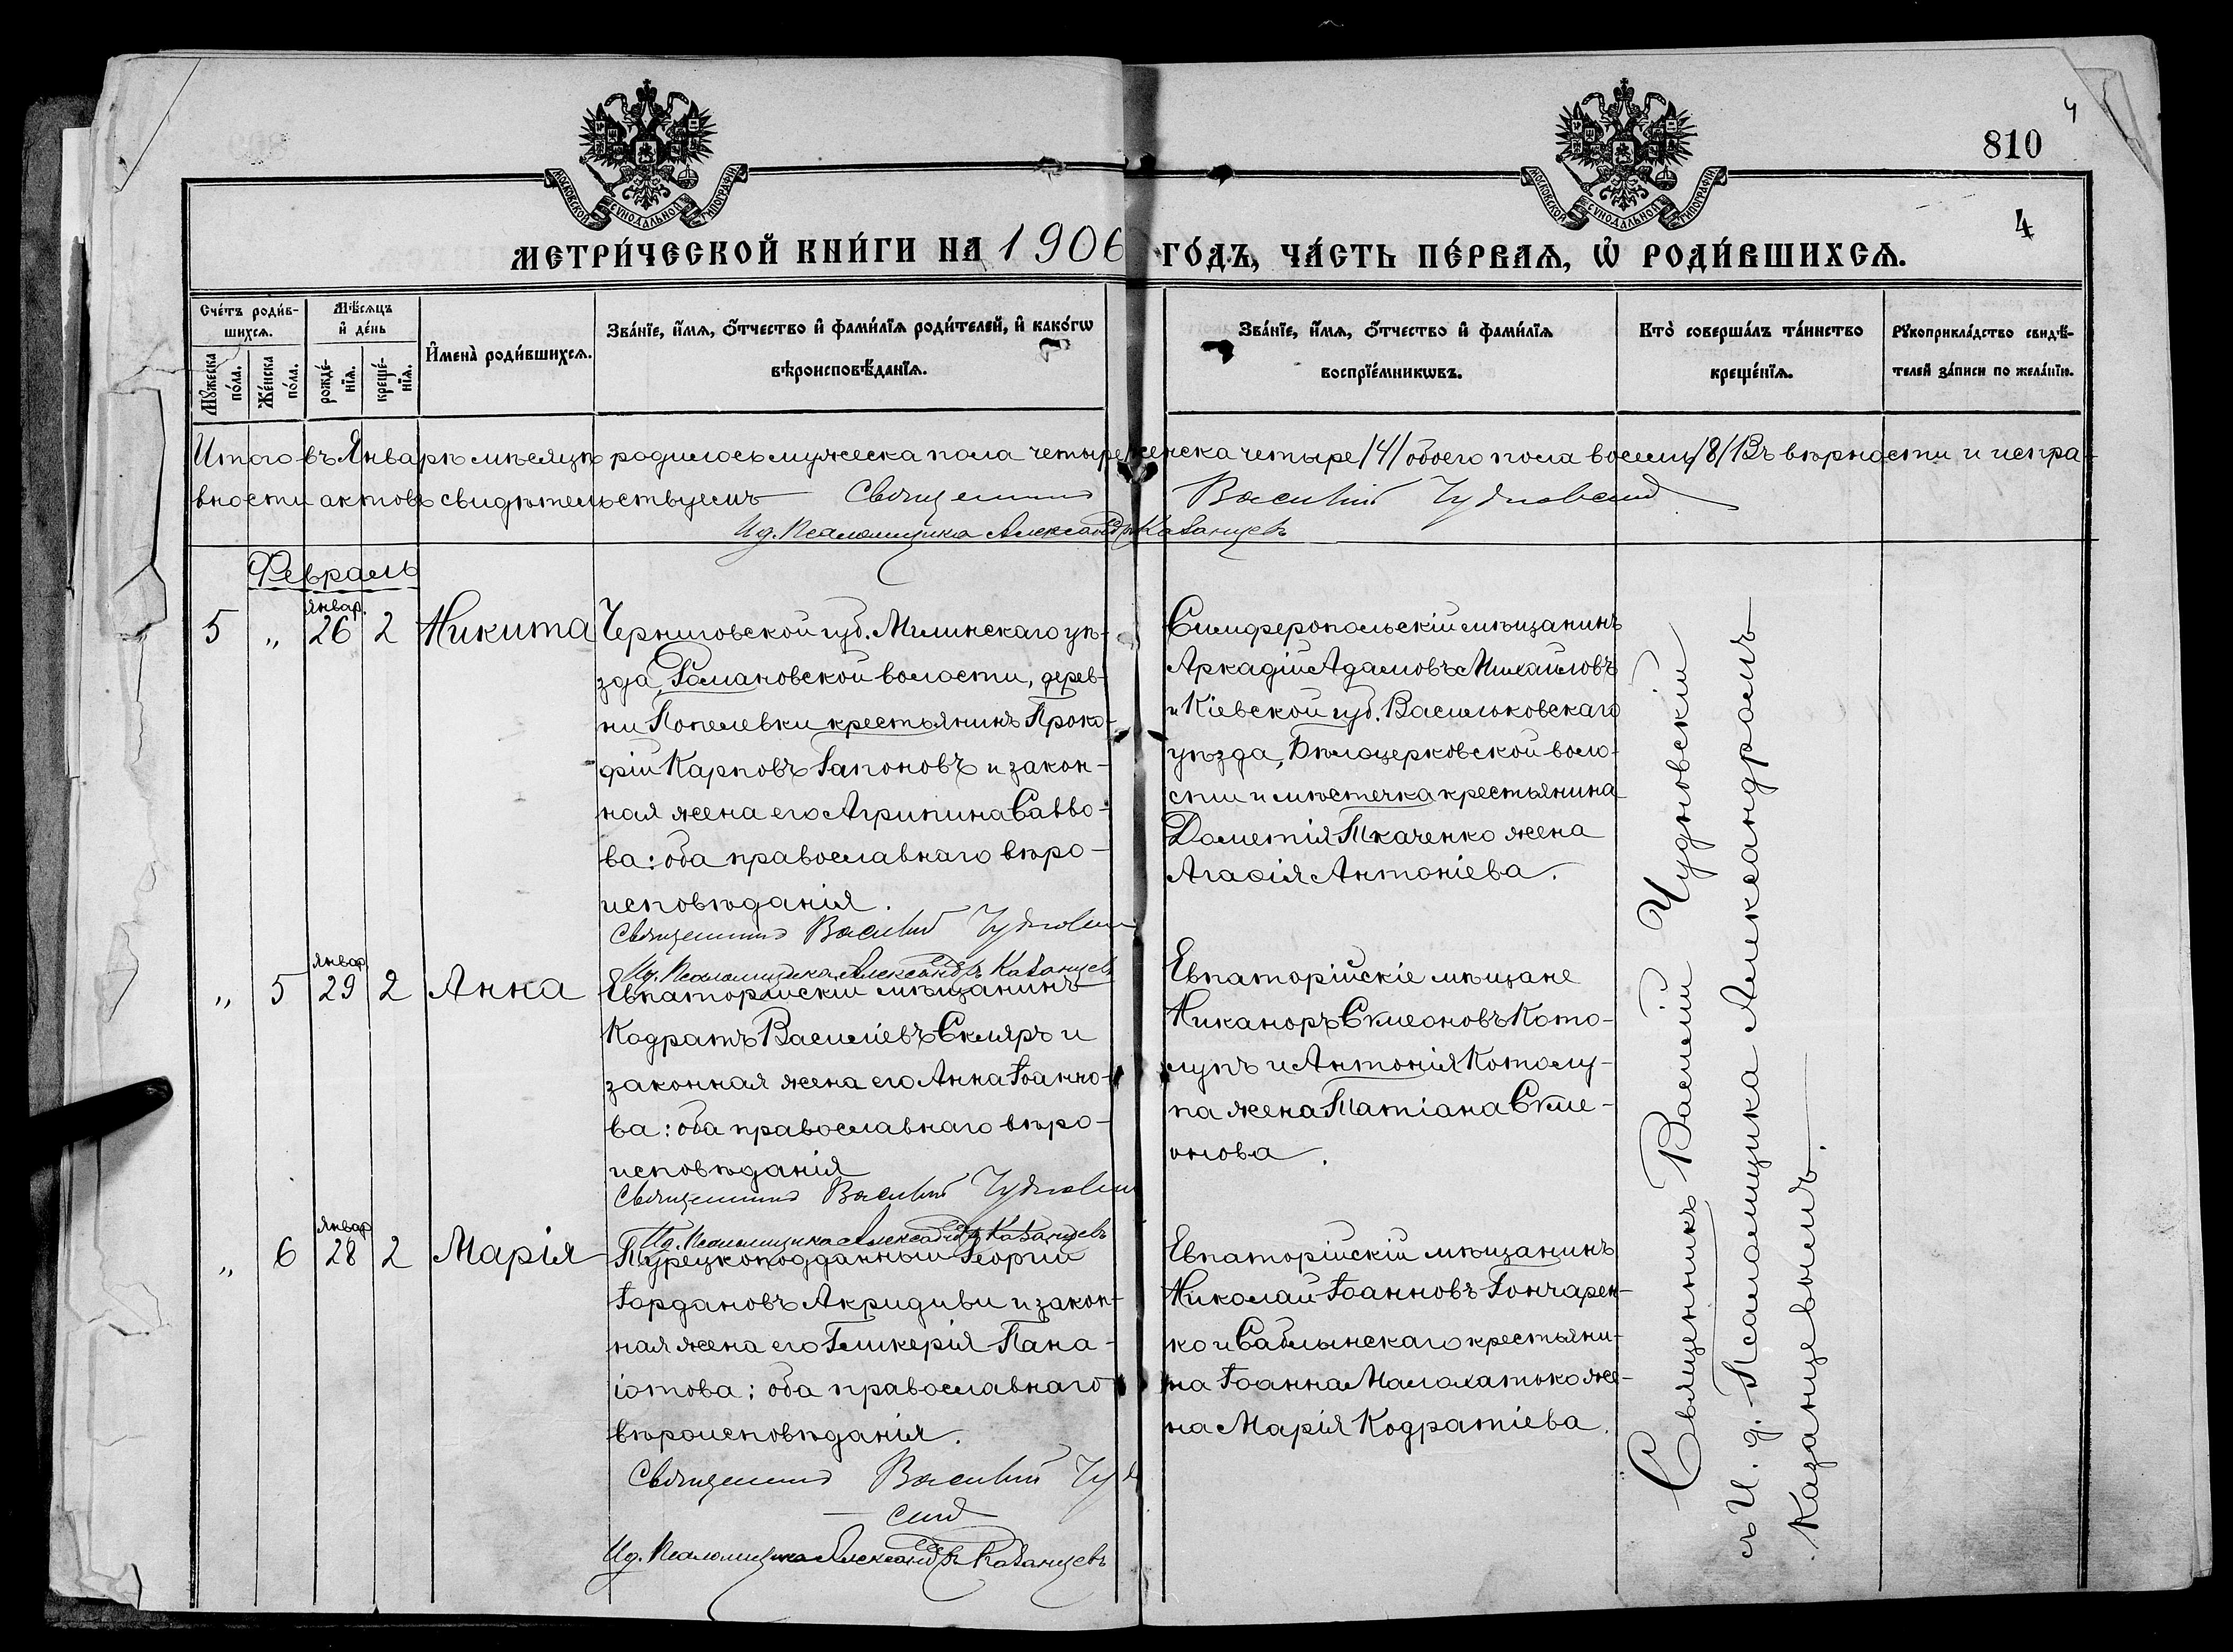 МОСКОВСКОЙ СѴНОДАЛЬНОЙ ТИПОГРАФІИ
МОСКОВСКОЙ СѴНОДАЛЬНОЙ ТИПОГРАФІИ
4
810
4
МЕТРИ́ЧЕСКОЙ КНИ́ГИ НА 1906 ГО́ДЪ, ЧА́СТЬ ПЕ́РВАѦ, Ѡ҆ РОДИ́ВШИХСѦ.
Сче́тъ роди́в-
шихсѧ.
Мѣ́сѧцъ
и҆ де́нь
Мꙋ́жеска по́ла.
Же́нска по́ла.
рожде́-нїѧ.
креще́-нїѧ.
И҆мена̀ роди́вшихсѧ.
Зва́нїе, и҆́мѧ, ѻ҆́тчество и҆ фами́лїѧ роди́телей, и҆ како́гѡ
вѣроисповѣ́данїѧ.
Зва́нїе, и҆́мѧ, ѻ҆́тчество и҆ фами́лїѧ
воспрїе́мникѡвъ.
Кто̀ соверша́лъ та́инство
креще́нїѧ.
Рꙋкоприкла́дство свидѣ́-
телей за́писи по жела́нїю.
Итого въ Январѣ мѣсяцѣ родилось мужеска пола четыре женска четыре /4/ обоего пола восемь /8/ Въ вѣрности и испра-
вности актовъ свидѣтельствуемъ Священникъ Василій Чудновскій
И.д. Псаломщика Александръ Казанцевъ
Февраль
5 " Январ. 26 2 Никита
Черниговской губ. Мглинскаго уѣ-
зда, Романовской волости, дерев-
ни Попелевки крестьянинъ Проко-
фій Карповъ Гапоновъ и закон-
ная жена его Агрипина Савво-
ва: оба православнаго вѣро-
исповѣданія.
Священникъ Василій Чудновскій
И.д. Псаломщика Александръ Казанцевъ
Симферопольскій мѣщанинъ
Аркадій Адамовъ Михайловъ
и Кіевской губ. Васильковскаго
уѣзда, Бѣлоцерковской воло-
сти и мѣстечка крестьянина
Дометія Ткаченко жена
Агафія Антоніева.
" 5 Январ 29 2 Анна
Евпаторійскій мѣщанинъ
Кодратъ Василіевъ Скляръ и
законная жена его Анна Іоанно-
ва: оба православнаго вѣро-
исповѣданія
Священникъ Василій Чудновскій
И.д. Псаломщика Александръ Казанцевъ
Евпаторійскіе мѣщане
Никаноръ Сѵмеоновъ Кото-
лупъ и Антонія Котолу-
па жена Татіана Сѵме-
онова.
" 6 Январ 28 2 Марія
Турецкоподданный Георгій
Іордановъ Акридиви и закон-
ная жена его Гликерія Пана-
іотова: оба православнаго
вѣроисповѣданія.
Священникъ Василій Чуд
скій
И.д. Псаломщика Александръ Казанцевъ
Евпаторійскій мѣщанинъ
Николай Іоанновъ Гончарен-
ко и Саблынскаго крестьяни-
на Іоанна Малохатько же-
на Марія Кодратіева.
Священникъ Василій Чудновскій
съ И. д. Псаломщика Александромъ
Казанцевымъ.